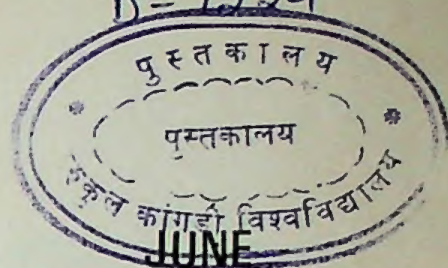 पुस्तकालय
पुस्तकालय
गुरुकुल कांगड़ी विश्वविद्यालय
JUNE